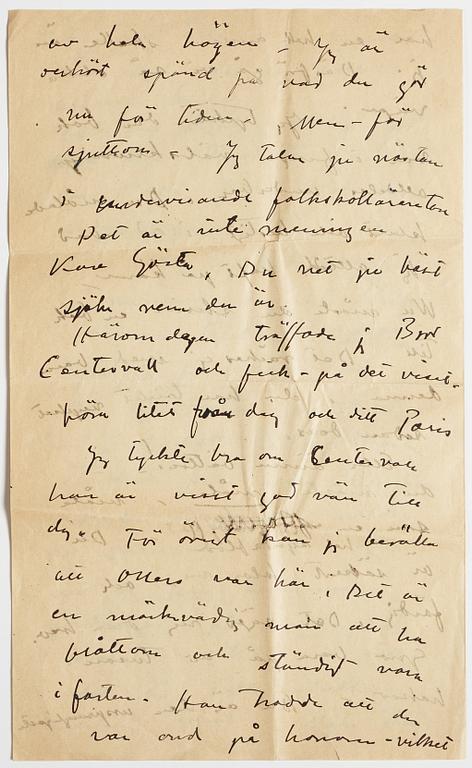 av hela högen - Jag är
oerhört spänd på vad du gör
nu för tiden. Men - för
sjuttom - Jg talar ju nästan
i undervisande folkskollärareton
Det är inte meningen
Kare Gösta, Du vet ju bäst
själv vem du är
Härom dagen träffade jg Bror
Centervall och fick - på det viset -
höra litet från dig och ditt Paris
Jg tyckte bra om Centervall
han är visst god vän till
dig. För övrigt kan jg berätta
att Otters var här, Det är
en märkvärdig man att ha
bråttom och ständigt vara
i farten - Han trodde att du
var ond på honom - vilket